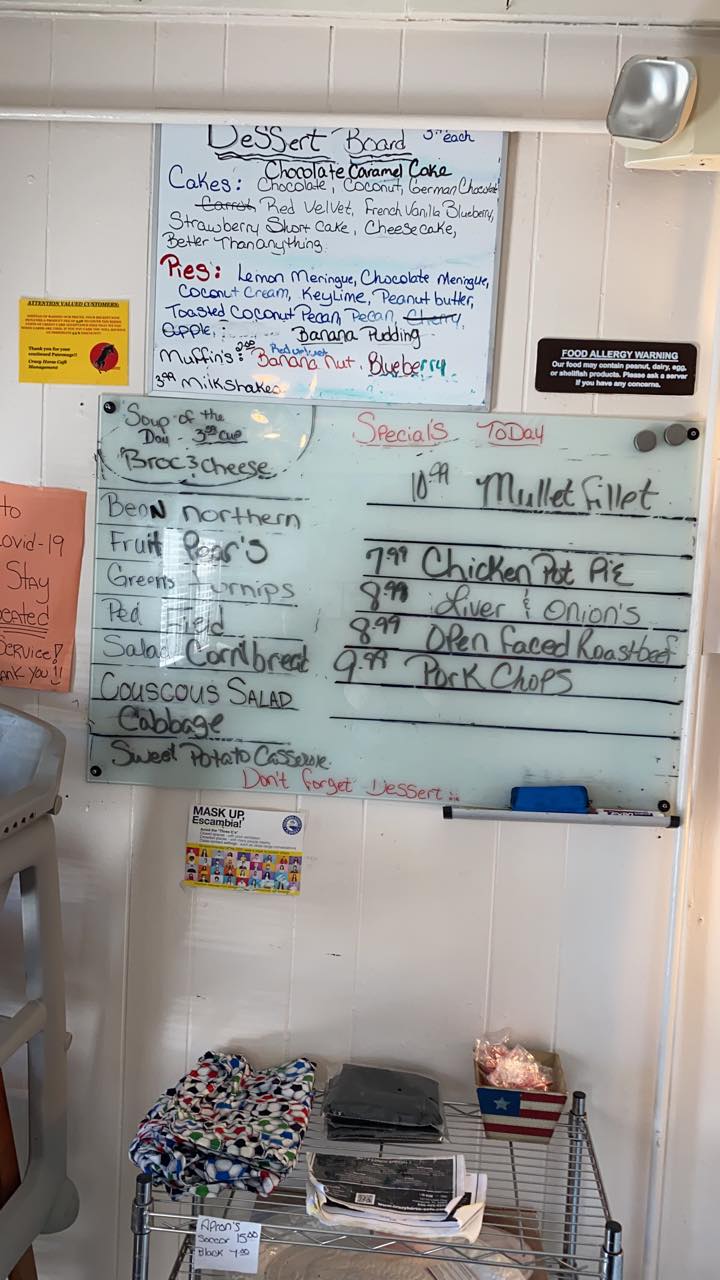 DeSSert Board each
Chocolate Caramel Cake
Cakes: Chocolate, Coconut, German Chocolate
Carrot Red Velvet, French Vanilla Blueberry,
Strawberry Short Cake, Cheesecake,
Better Than anything
Pies: Lemon Meringue, Chocolate Meringue,
Coconut Cream, Key Lime, Peanut butter,
Toasted Coconut Pecan, Pecan, Cherry,
Apple,
Banana Pudding
Red velvet
Muffin's: Banana Nut, Blueberry
3.99 Milkshakes
ATTENTION VALUED CUSTOMERS:
Thank you for your
continued Patronage!!
Crazy Horse Café
Management
FOOD ALLERGY WARNING
Our food may contain peanut, dairy, egg,
or shellfish products. Please ask a server
if you have any concerns.
Soup of the
Day 3.99 cup
Broc & cheese
Special's ToDay
10.99 Mullet fillet
Bean northern
Fruit Pear's
Greens Turnips
Pea Field
Salad Cornbread
Couscous SALAD
Cabbage
Sweet Potato Casserole
7.99 Chicken Pot PiE
8.99 Liver & onion's
8.99 Open faced Roastbeef
9.99 Pork Chops
Don't forget Dessert
to
ovid-19
Stay
eated
Service!
ank you!!
MASK UP,
Escambia!
Apron's
Soccer 15.00
Black 7.00